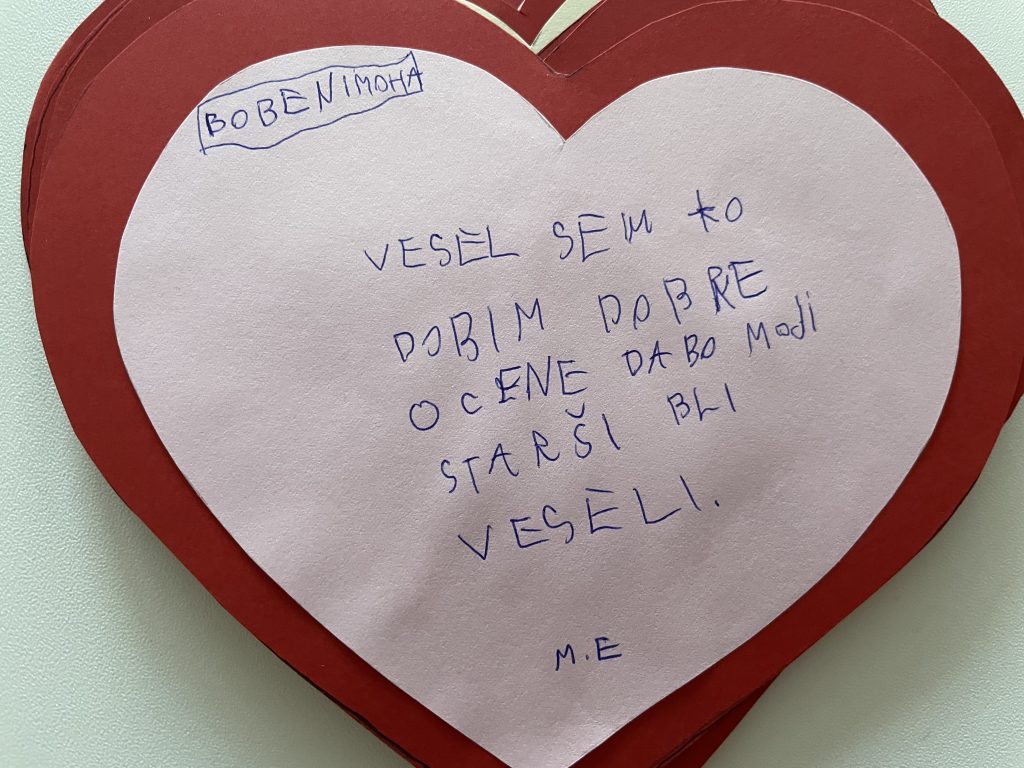 BOBENIMOHA
VESEL SEM KO
DOBIM DOBRE
OCENE DA BO MOJI
STARŠI BLI
VESELI.
M.E